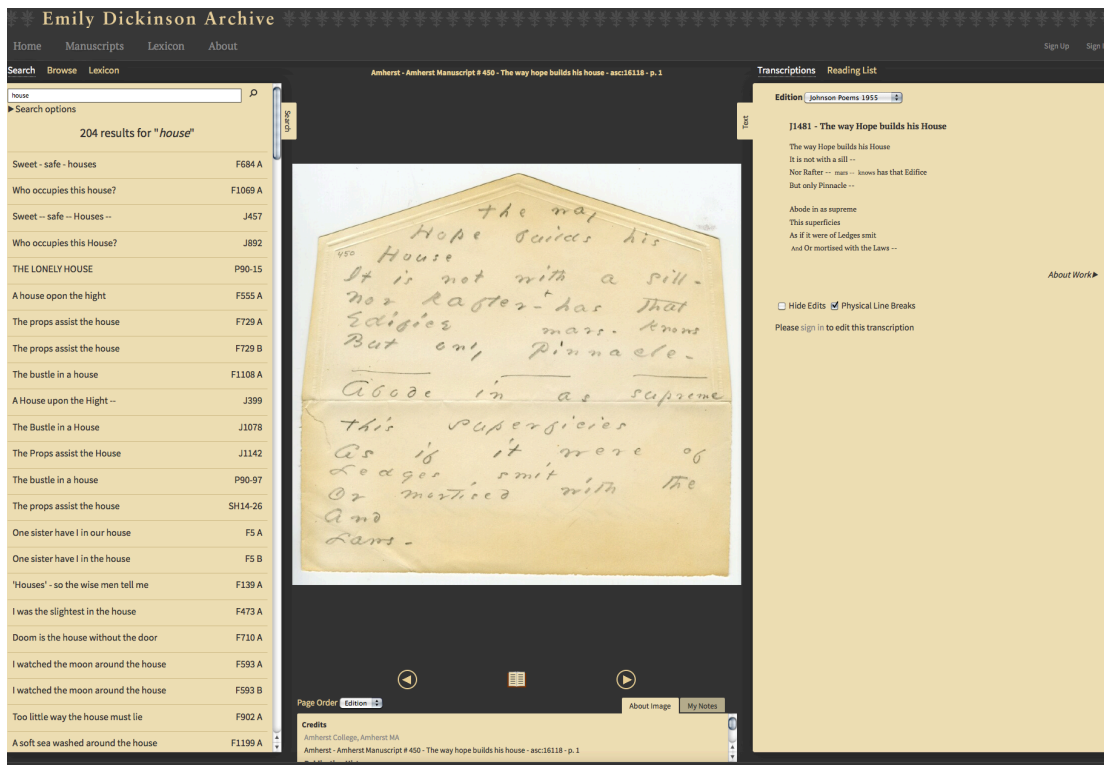 Emily Dickinson Archive
Home Manuscripts Lexicon About
Sign Up Sign I
Search Browse Lexicon
house
▶Search options
204 results for "house"
Sweet - safe - houses F684 A
Who occupies this house? F1069 A
Sweet -- safe -- Houses -- J457
Who occupies this House? J892
THE LONELY HOUSE P90-15
A house opon the hight F555 A
The props assist the house F729 A
The props assist the house F729 B
The bustle in a house F1108 A
A House upon the Hight -- J399
The Bustle in a House J1078
The Props assist the House J1142
The bustle in a house P90-97
The props assist the house SH14-26
One sister have I in our house F5 A
One sister have I in the house F5 B
'Houses' - so the wise men tell me F139 A
I was the slightest in the house F473 A
Doom is the house without the door F710 A
I watched the moon around the house F593 A
I watched the moon around the house F593 B
Too little way the house must lie F902 A
A soft sea washed around the house F1199 A
Search
Amherst - Amherst Manuscript # 450 - The way hope builds his house - asc:16118 - p. 1
Text
the way
Hope builds his
450 House
It is not with a sill -
nor Rafter - has that
Edifice mars - knows
But only Pinnacle -
Abode in as supreme
this superficies
As if it were of
Ledges smit
Or mortised with the
And
Laws -
Page Order Edition
About Image My Notes
Credits
Amherst College, Amherst MA
Amherst - Amherst Manuscript # 450 - The way hope builds his house - asc:16118 - p. 1
Transcriptions Reading List
Edition Johnson Poems 1955
J1481 - The way Hope builds his House
The way Hope builds his House
It is not with a sill --
Nor Rafter -- mars -- knows has that Edifice
But only Pinnacle --
Abode in as supreme
This superficies
As if it were of Ledges smit
And Or mortised with the Laws --
About Work▶
Hide Edits Physical Line Breaks
Please sign in to edit this transcription